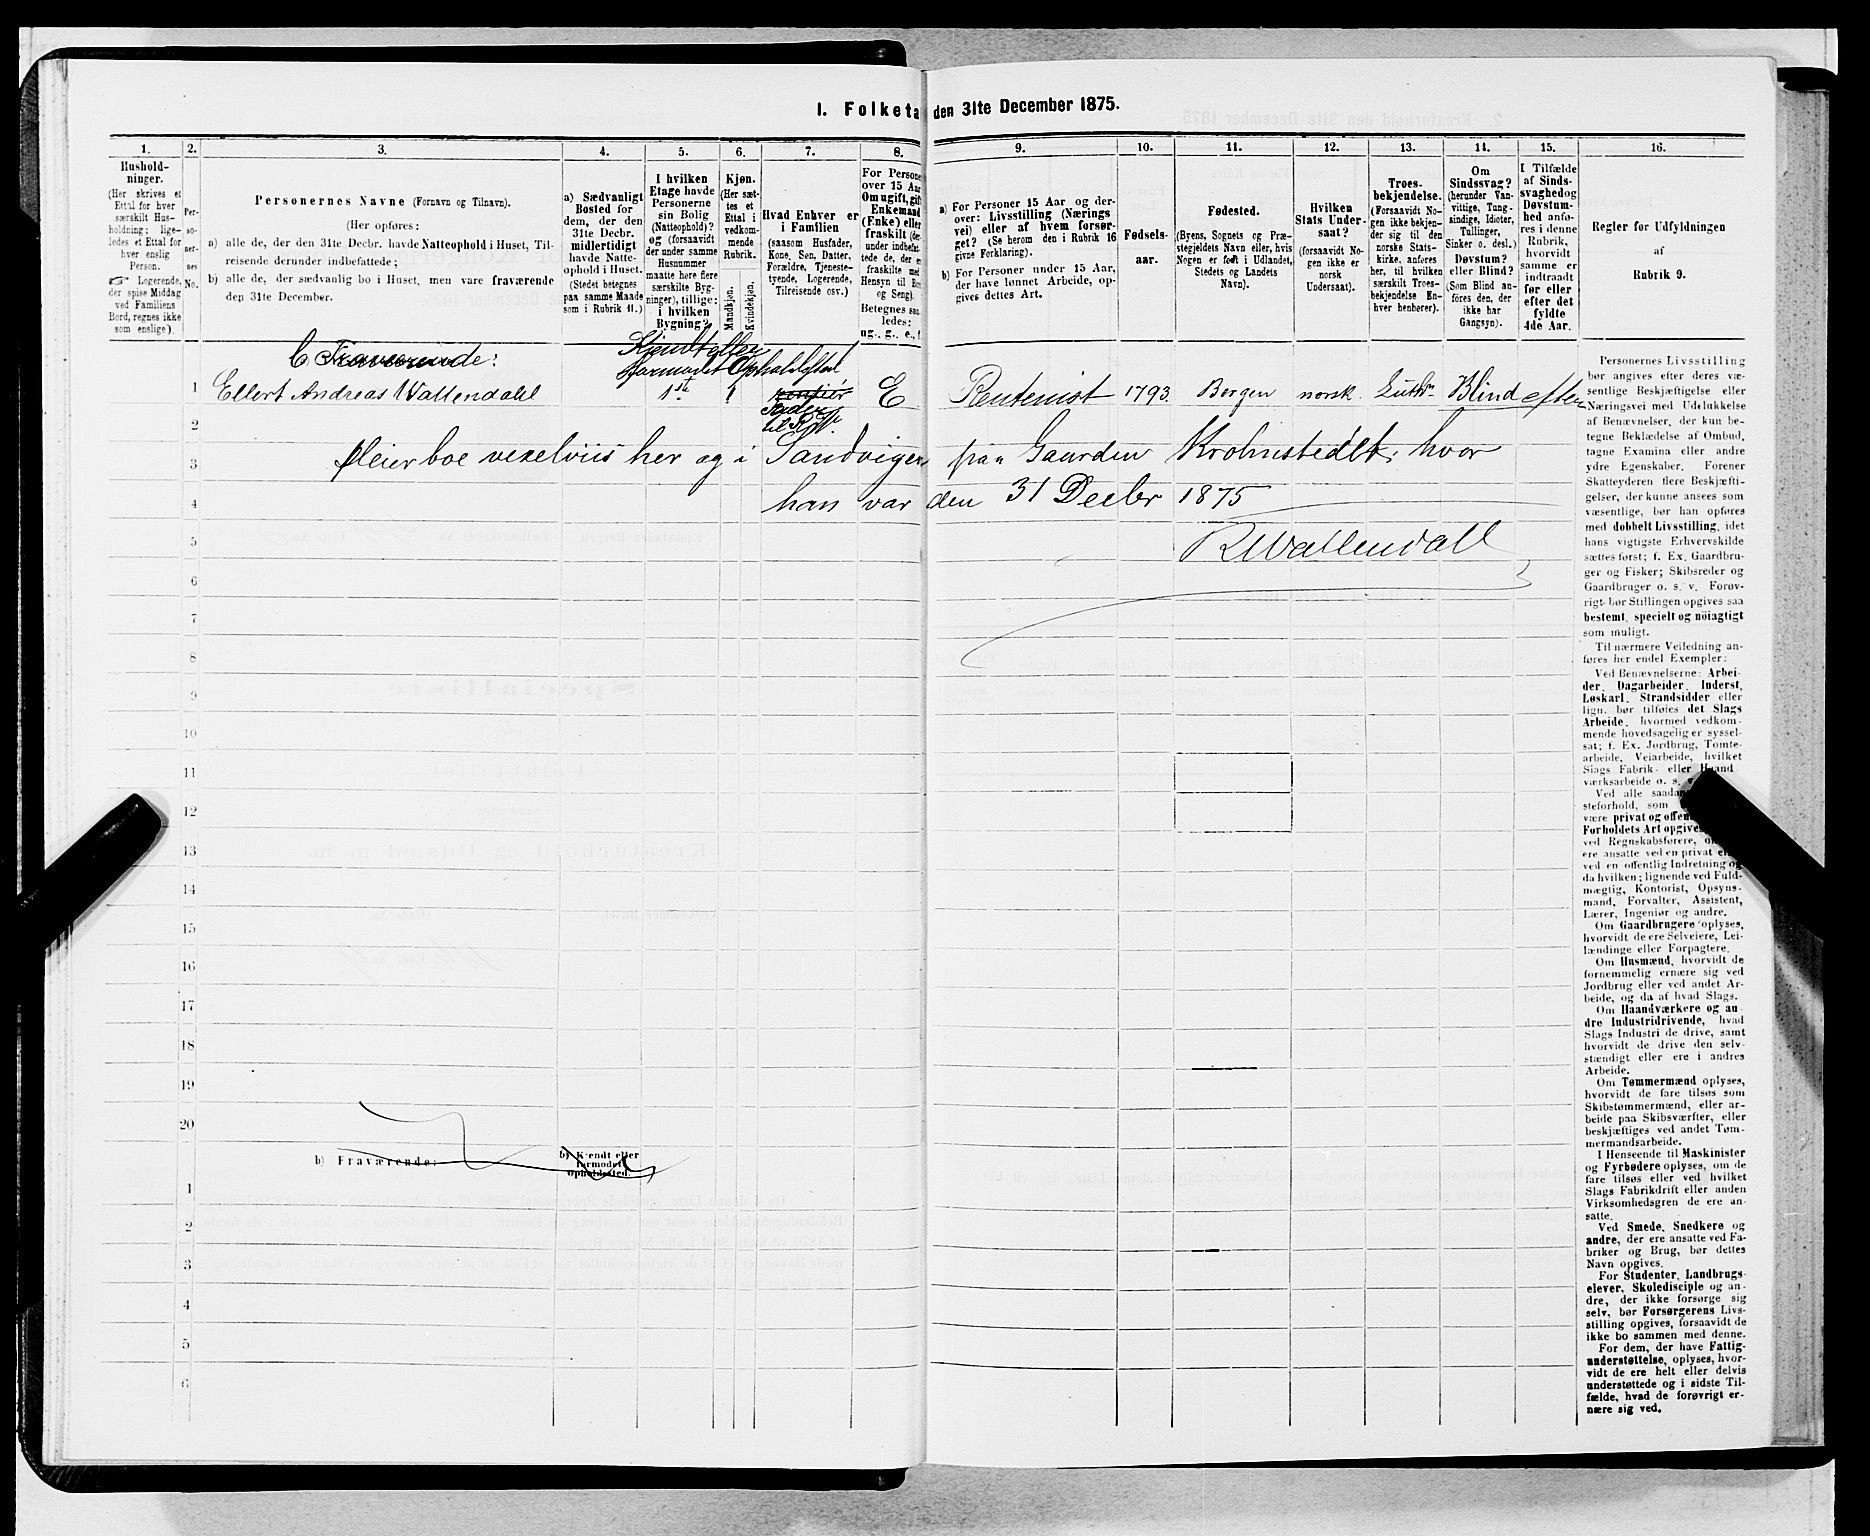 1. Folketa den 31te December 1875.
1. 2. 3. 4. 5. 6. 7. 8. 9. 10. 11. 12. 13. 14. 15. 16.
Hushold-
ninger.
(Her skrives et
Ettal for hver
særskilt Hus-
holdning; lige-
ledes et Ettal for
hver enslig
Person.
☞ Logerende,
der spise Middag
ved Familiens
Bord, regnes ikke
som enslige).
Per-
so-
ner-
nes
No.
Personernes Navne (Fornavn og Tilnavn).
(Her opføres:
a) alle de, der den 31te Decbr. havde Natteophold i Huset, Til-
reisende derunder indbefattede;
b) alle de, der sædvanlig bo i Huset, men vare fraværende
den 31te December.
a) Sædvanligt
Bosted for
dem, der den
31te Decbr.
midlertidigt
havde Natte-
ophold i Huset.
(Stedet betegnes
paa samme Maade
som i Rubrik 11.)
I hvilken
Etage havde
Personerne
sin Bolig
(Natteophold)?
og (forsaavidt
der under samme
Husnummer
maatte høre flere
særskilte Byg-
ninger), tillige:
i hvilken
Bygning?
Kjøn.
(Her sæt-
tes et
Ettal i
vedkom-
mende
Rubrik.
Mandkjøn.
Kvindekjøn.
Hvad Enhver er
i Familien
(saasom Husfader,
Kone, Søn, Datter,
Forældre, Tjeneste-
tyende, Logerende,
Tilreisende osv.)
For Persone
over 15 Aar
Om ugift, gift
Enkemand
(Enke) eller
fraskilt (der-
under indbefat-
tede de, der er
fraskilte med
Hensyn til Bo
og Seng).
Betegnes saa-
ledes:
ug., g., e., f
a) For Personer 15 Aar og der-
over: Livsstilling (Nærings
vei) eller af hvem forsør-
get? (Se herom den i Rubrik 16
givne Forklaring).
b) For Personer under 15 Aar,
der have lønnet Arbeide, op-
gives dettes Art.
Fødsels-
aar.
Fødested.
(Byens, Sognets og Præ-
stegjeldets Navn eller, hvis
Nogen er født i Udlandet,
Stedets og Landets
Navn).
Hvilken
Stats Under-
saat?
(forsaavidt No-
gen ikke er
norsk
Undersaat).
Troes-
bekjendelse.
(Forsaavidt No-
gen ikke bekjen-
der sig til den
norske Stats-
kirke, anføres
her, til hvilken
særskilt Troes-
bekjendelse En-
hver henhører).
Om
Sindssvag?
(herunder Van-
vittige, Tung-
sindige, Idioter,
Tullinger,
Sinker o. desl.)
Døvstum?
eller Blind?
(Som Blind an-
føres den, der
ikke har
Gangsyn).
I Tilfælde
af Sinds-
svaghed og
Døvstum-
hed anfø-
res i denne
Rubrik,
hvorvidt
samme er
indtraadt
før eller
efter det
fyldte
4de Aar.
Regler for Udfyldningen
af
Rubrik 9.
C Fraværende: Kjendt eller
formodet Opholdssted
1 Ellert Andreas Wallendahl 1st 1 rentiér E Rentenist 1793. Bergen norsk. Luth. Blind efter
Fader
til
2
3 pleier boe vexelviis her og i Sandvigen paa Gaarden Krohnstedet, hvor
4 han var den 31 Decbr 1875
5 RWallendall
6
7
8
9
10
11
12
13
14
15
16
17
18
19
20
b) Fraværende: b) Kjendt eller
formodet
Opholdssted.
1
2
3
4
5
6
Personernes Livsstilling
bør angives efter deres væ-
sentlige Beskjæftigelse eller
Næringsvei med Udelukkelse
af Benævnelser, der kun be-
tegne Beklædelse af Ombud,
tagne Examina eller andre
ydre Egenskaber. Forener
Skatteyderen flere Beskjæfti-
gelser, der kunne ansees som
væsentlige, bør han opføres
med dobbelt Livsstilling, idet
hans vigtigste Erhvervskilde
sættes først; f. Ex. Gaardbru-
ger og Fisker; Skibsreder og
Gaardbruger o. s. v. Forøv-
rigt bør Stillingen opgives saa
bestemt, specielt og nöiagtigt
som muligt.
Til nærmere Veiledning an-
føres her endel Exempler:
Ved Benævnelserne: Arbei-
der, Dagarbeider, Inderst,
Løskarl, Strandsidder eller
lign. bør tilføies det Slags
Arbeide, hvormed vedkom-
mende hovedsagelig er syssel-
sat; f. Ex. Jordbrug, Tomte-
arbeide, Veiarbeide, hvilket
Slags Fabrik- eller Haand-
værksarbeide o. s.
Ved alle saadan
steforhold, som
være privat og offen
Forholdets Art opgives,
ved Regnskabsførere, o
ere ansatte ved en privat el
ved en offentlig Indretning og
da hvilken; lignende ved Fuld-
mægtig, Kontorist, Opsyns-
mand, Forvalter, Assistent,
Lærer, Ingeniør og andre.
Om Gaardbrugere oplyses,
hvorvidt de ere Selveiere, Lei-
lændinge eller Forpagtere.
Om Husmænd, hvorvidt de
fornemmelig ernære sig ved
Jordbrug eller ved andet Ar-
beide, og da af hvad Slags.
Om Haandværkere og an-
dre Industridrivende, hvad
Slags Industri de drive, samt
hvorvidt de drive den selv-
stændigt eller ere i andres
Arbeide.
Om Tømmermænd oplyses,
hvorvidt de fare tilsøs som
Skibstømmermænd, eller ar-
beide paa Skibsværfter, eller
beskjæftiges ved andet Tøm-
mermandsarbeide.
I Henseende til Maskinister
og Fyrbødere oplyses, om de
fare tilsøs eller ved hvilket
Slags Fabrikdrift eller anden
Virksomhedsgren de ere an-
satte.
Ved Smede, Snedkere og
andre, der ere ansatte ved Fa-
briker og Brug, bør dettes
Navn opgives.
For Studenter, Landbrugs-
elever, Skoledisciple og an-
dre, der ikke forsørge sig
selv, bør Forsørgerens Livs-
stilling opgives, forsaavidt de
ikke bo sammen med denne.
For dem, der have Fattig-
understøttelse, oplyses, hvor-
vidt de ere helt eller delvis
understøttede og i sidste Til-
fælde, hvad de forøvrigt er-
nære sig ved.